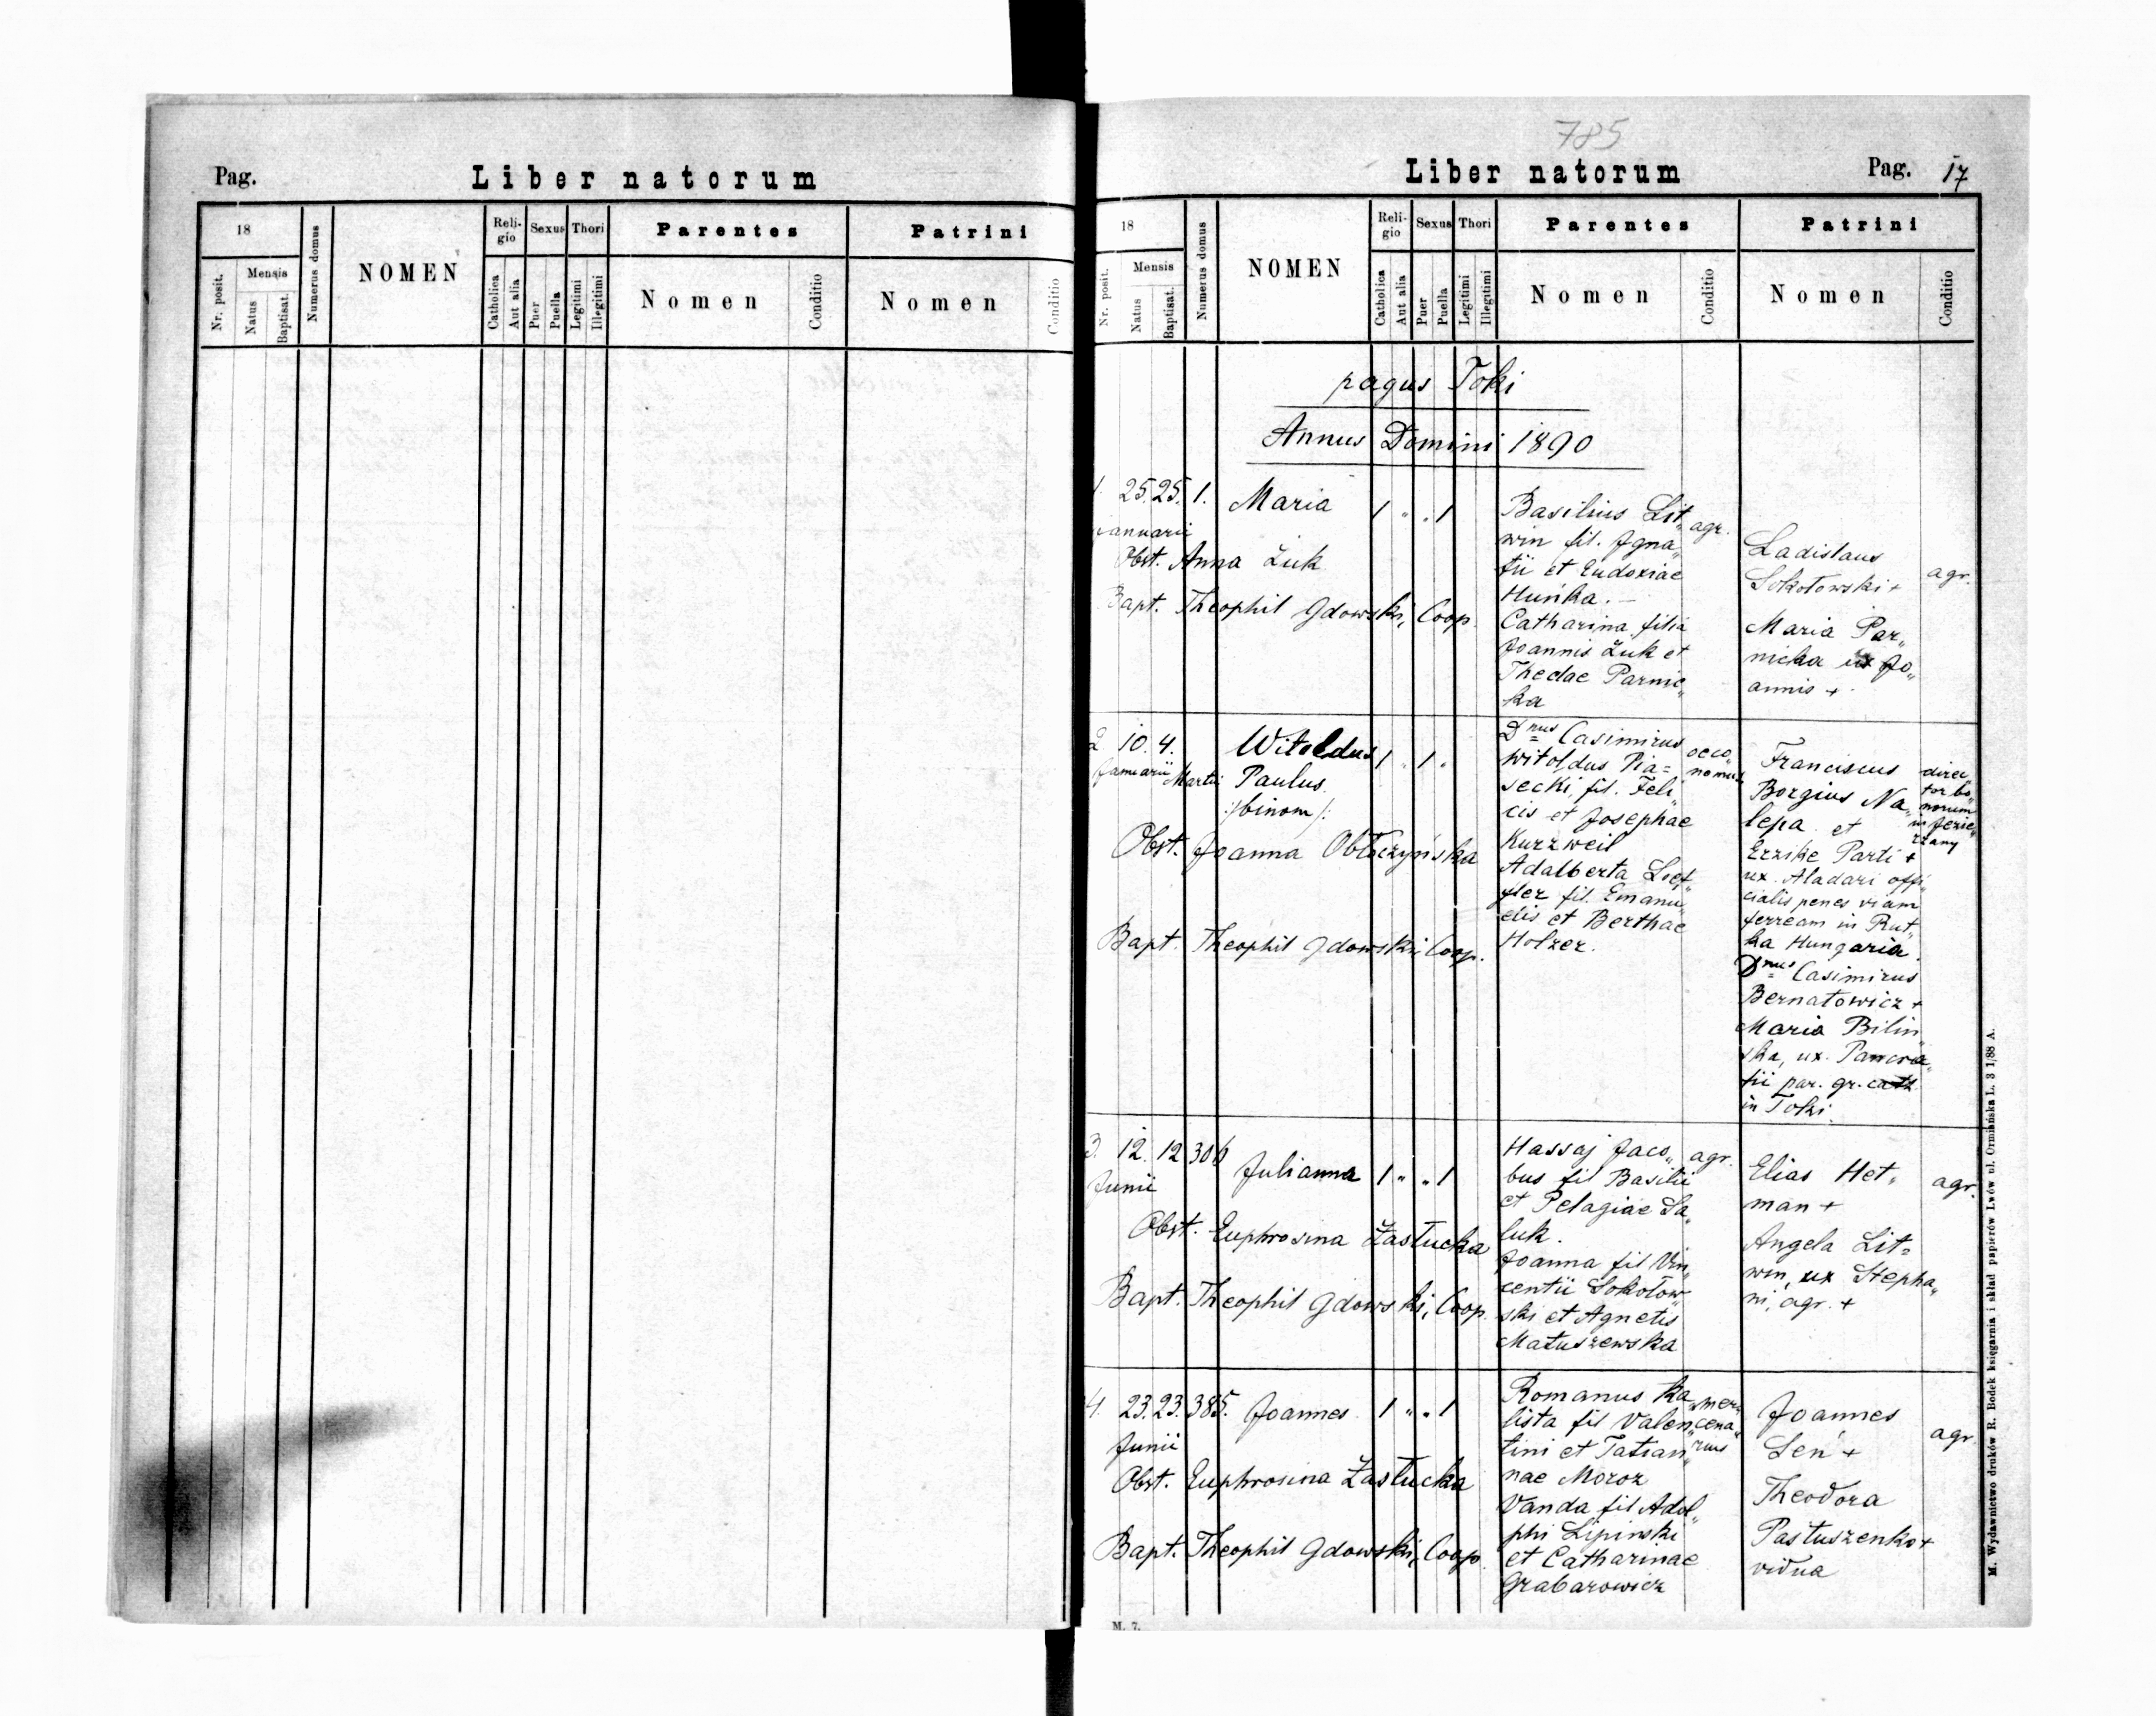 Pag.
Liber natorum
18
Nr. posit.
Mensis
Natus
Baptisat.
Numerus domus
NOMEN
Reli-
gio
Catholica
Aut alia
Sexus
Puer
Puella
Thori
Legitimi
Illegitimi
Parentes
Nomen
Conditio
Patrini
Nomen
Conditio
785
Liber natorum
Pag. 17
18
Nr. posit.
Mensis
Natus
Baptisat.
Numerus domus
NOMEN
Reli-
gio
Catholica
Aut alia
Sexus
Puer
Puella
Thori
Legitimi
Illegitimi
Parentes
Nomen
Conditio
Patrini
Nomen
Conditio
pagus Toki
Annus Domini 1890
1. 25. 25. 1. Maria 1 " " 1
Januarii
Obst. Anna Żuk
Bapt. Theophil Gdowski, Coop.
Basilius Lit„ agr.
win fil. Igna„
tii et Eudoxiae
Huńka. —
Catharina filia
Joannis Żuk et
Theclae Parnic„
ka
Ladislaus
Sokołowski +
agr.
Maria Par„
nicka ux Jo„
annis +
2. 10. 4. Witoldus 1 " 1 "
Januarii Martii Paulus.
:/binom/:
Obst. Joanna Obłoczyńska
Bapt. Theophil Gdowski, Coop.
Dnus Casimirus
Witoldus Pia=
secki, fil. Feli„
cis et Josephae
Kurzweil
Adalberta Loef„
fler fil. Emanu„
elis et Berthae
Holzer.
oeco„
nomus
Franciscus
Borgius Na„
lepa et
Erzike Parti +
ux. Aladari offi„
cialis penes viam
ferream in Rut„
ka Hungaria.
Dnus Casimirus
Bernatowicz +
Maria Bilin„
ska, ux. Pancra„
tii par. gr. cath.
in Toki.
direc„
tor bo„
norum
in Jezie„
rzany
3. 12. 12 306 Julianna 1 " " 1
Junii
Obst. Euphrosina Załucka
Bapt. Theophil Gdowski, Coop.
Hassaj Jaco„ agr.
bus fil Basilii
et Pelagiae Sa„
luk.
Joanna fil Vin„
centii Sokołow„
ski et Agnetis
Matuszewska
Elias Het„
man +
agr.
Angela Lit=
win, ux Stepha„
ni, agr. +
4. 23. 23. 385. Joannes 1 " " 1
Junii
Obst. Euphrosina Załucka
Bapt. Theophil Gdowski, Coop.
Romanus Ka„
lista fil Valen„
tini et Tatian„
nae Moroz
Vanda fil Adol„
phi Lipinski
et Catharinae
Grabarowicz
mer„
cena„
rius
Joannes
Seń +
agr
Theodora
Pastuszenko +
vidua
M. 7.
M. Wydawnictwo druków R. Bodek księgarnia i skład papierów Lwów ul. Ormiańska L. 3 1/88 A.